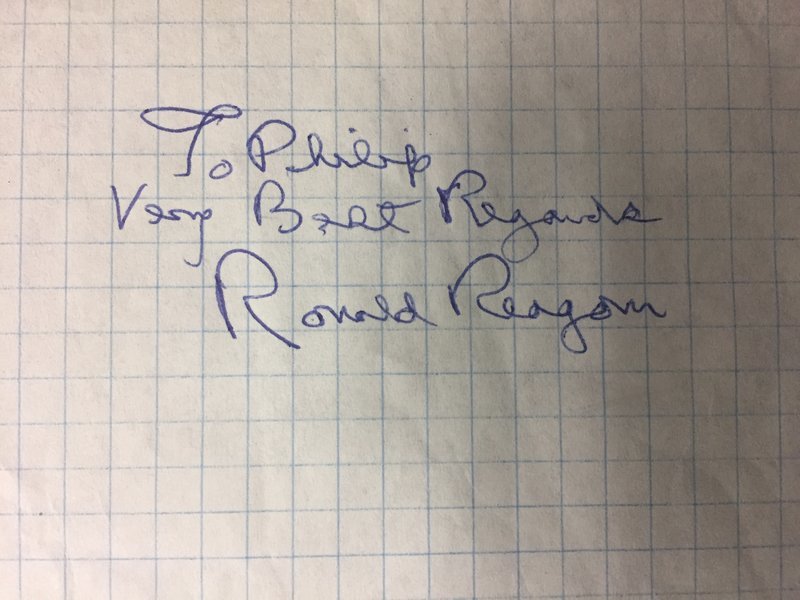 To Philip
Very Best Regards
Ronald Reagan